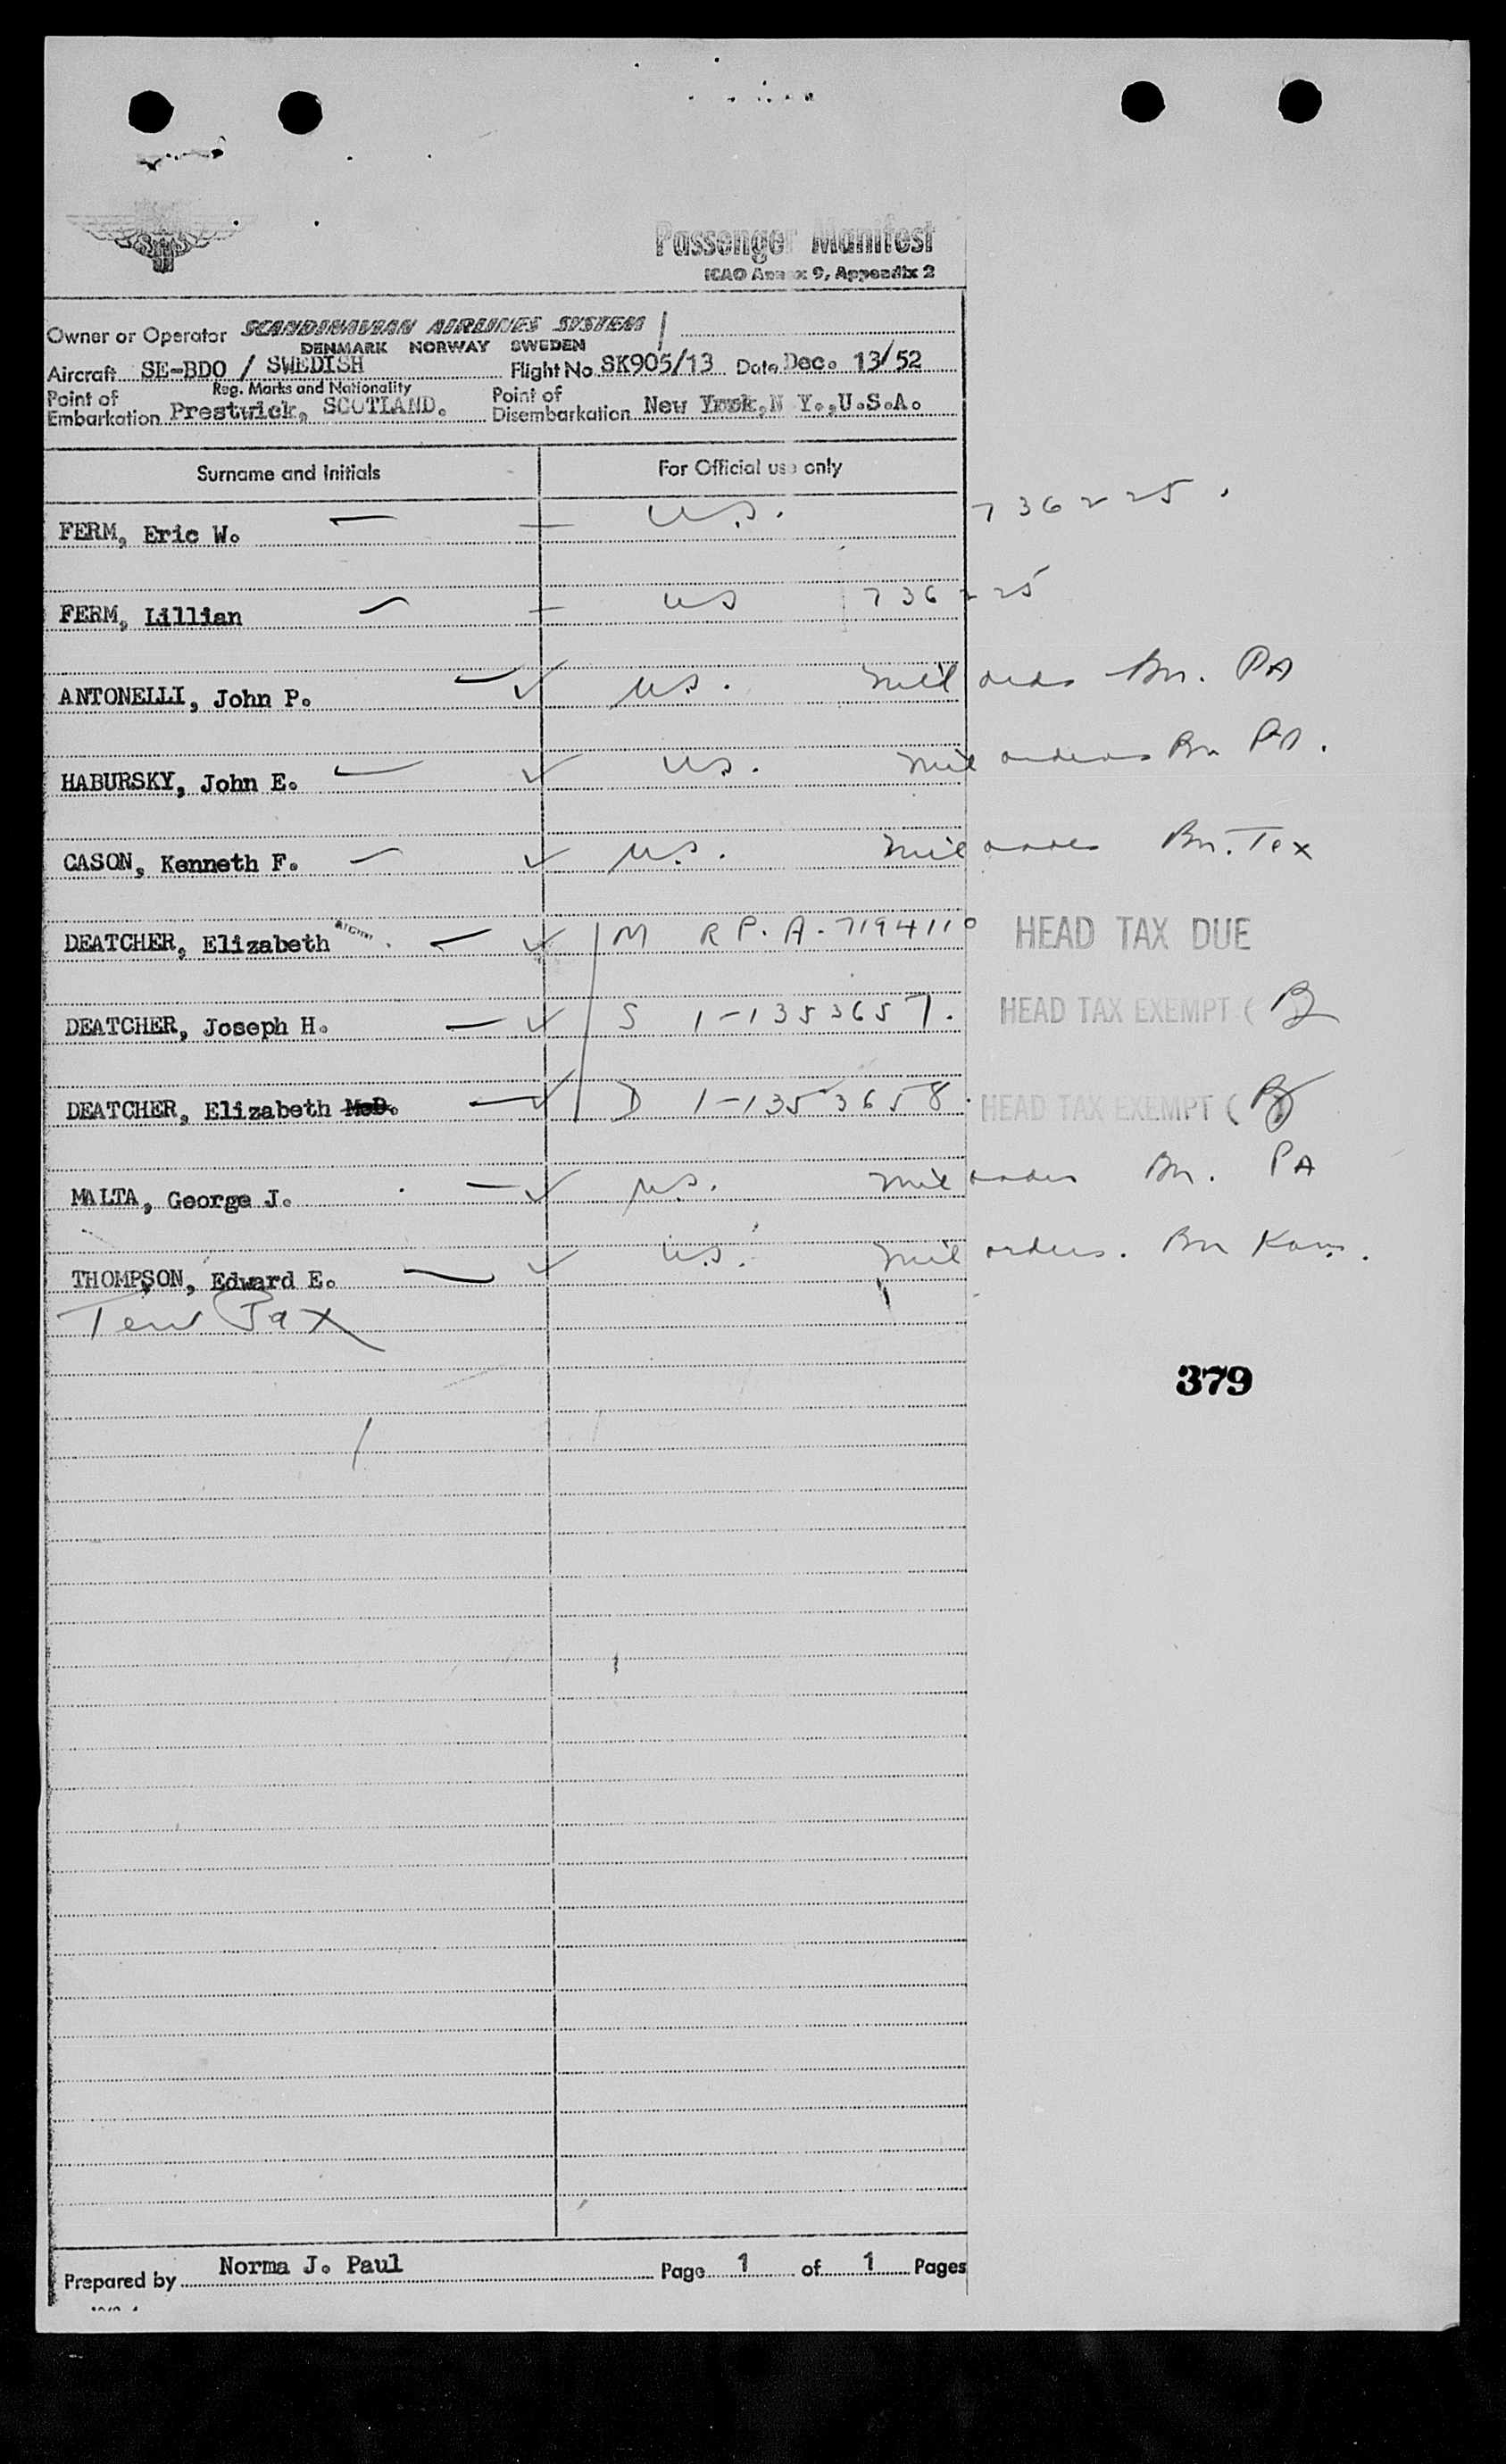 SAS
Passenger Manifest
ICAO Annex 9, Appendix 2
Owner or Operator SCANDINAVIAN AIRLINES SYSTEM
DENMARK NORWAY SWEDEN
Aircraft SE-BDO / SWEDISH Flight No. SK905/13 Date Dec. 13/52
Reg. Marks and Nationality
Point of Embarkation Prestwick, SCOTLAND. Point of Disembarkation New York, N Y., U.S.A.
Surname and Initials For Official use only
FERM, Eric W. U.S. 736225.
FERM, Lillian US 736225
ANTONELLI, John P. U.S. mil Bn. PA
HABURSKY, John E. U.S. mil orders Bn PA.
CASON, Kenneth F. U.S. mil orders Bn. Tex
DEATCHER, Elizabeth M R P. A-7194110 HEAD TAX DUE
DEATCHER, Joseph H. S 1-1353657. HEAD TAX EXEMPT (
DEATCHER, Elizabeth McD. D 1-1353658. HEAD TAX EXEMPT (
MALTA, George J. U.S. mil orders Bn. PA
THOMPSON, Edward E. U.S. mil orders. Bn Kans.
Ten Pax
379
Prepared by Norma J. Paul Page 1 of 1 Pages